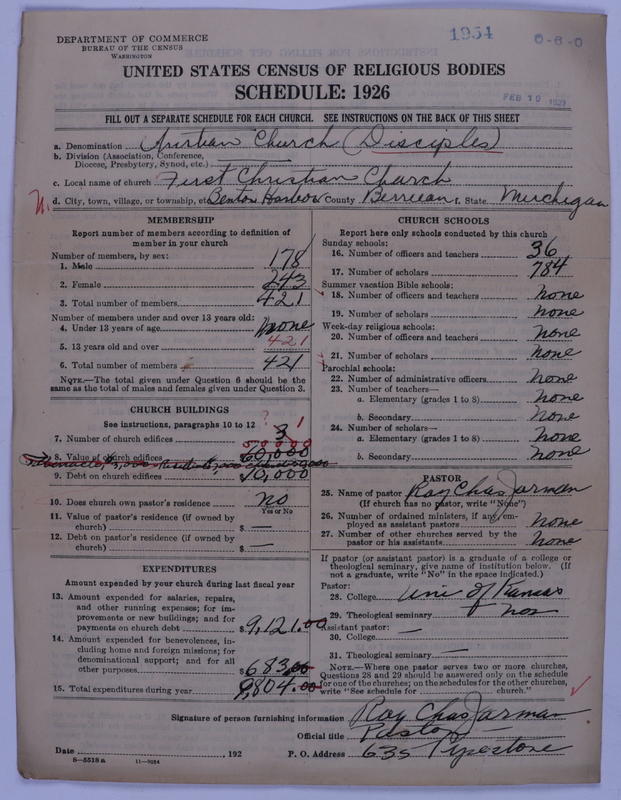 1954
0-6-0
DEPARTMENT OF COMMERCE
BUREAU OF THE CENSUS
WASHINGTON
UNITED STATES CENSUS OF RELIGIOUS BODIES
SCHEDULE: 1926
FEB 10
FILL OUT A SEPARATE SCHEDULE FOR EACH CHURCH. SEE INSTRUCTIONS ON THE BACK OF THIS SHEET
a. Denomination Christian Church (Disciples)
b. Division (Association, Conference,
Diocese, Presbytery, Synod, etc.)
c. Local name of church First Christian Church
d. City, town, village, or township, etc. Benton Harbor County Berrien f. State Michigan
MEMBERSHIP
Report number of members according to definition of
member in your church
Number of members, by sex:
1. Male 178
2. Female 243
3. Total number of members 421
Number of members under and over 13 years old:
4. Under 13 years of age none
5. 13 years old and over 421
6. Total number of members 421
NOTE.—The total given under Question 6 should be the
same as the total of males and females given under Question 3.
CHURCH BUILDINGS
See instructions, paragraphs 10 to 12 ? 1
7. Number of church edifices 3
8. Value of church edifices 60,000
9. Debt on church edifices 10,000
10. Does church own pastor's residence no
Yes or No
11. Value of pastor's residence (if owned by
church) $ —
12. Debt on pastor's residence (if owned by
church) $ —
EXPENDITURES
Amount expended by your church during last fiscal year
13. Amount expended for salaries, repairs,
and other running expenses; for im-
provements or new buildings; and for
payments on church debt $9,121.00
14. Amount expended for benevolences, in-
cluding home and foreign missions; for
denominational support; and for all
other purposes $683.00
15. Total expenditures during year 9,804.00
CHURCH SCHOOLS
Report here only schools conducted by this church
Sunday schools:
16. Number of officers and teachers 36
17. Number of scholars 784
Summer vacation Bible schools:
18. Number of officers and teachers none
19. Number of scholars none
Week-day religious schools:
20. Number of officers and teachers none
21. Number of scholars none
Parochial schools:
22. Number of administrative officers none
23. Number of teachers—
a. Elementary (grades 1 to 8) none
b. Secondary none
24. Number of scholars—
a. Elementary (grades 1 to 8) none
b. Secondary none
PASTOR
25. Name of pastor Roy Chas Jarman
(If church has no pastor, write "None")
26. Number of ordained ministers, if any, em-
ployed as assistant pastors none
27. Number of other churches served by the
pastor or his assistants none
If pastor (or assistant pastor) is a graduate of a college or
theological seminary, give name of institution below. (If
not a graduate, write "No" in the space indicated.)
Pastor:
28. College Uni of Kansas
29. Theological seminary
Assistant pastor:
30. College —
31. Theological seminary —
NOTE.—Where one pastor serves two or more churches,
Questions 28 and 29 should be answered only on the schedule
for one of the churches; on the schedules for the other churches,
write "See schedule for church."
Signature of person furnishing information Roy Chas Jarman
Official title Pastor
Date 192 P. O. Address 635 Pipestone
8—5518a 11—9034